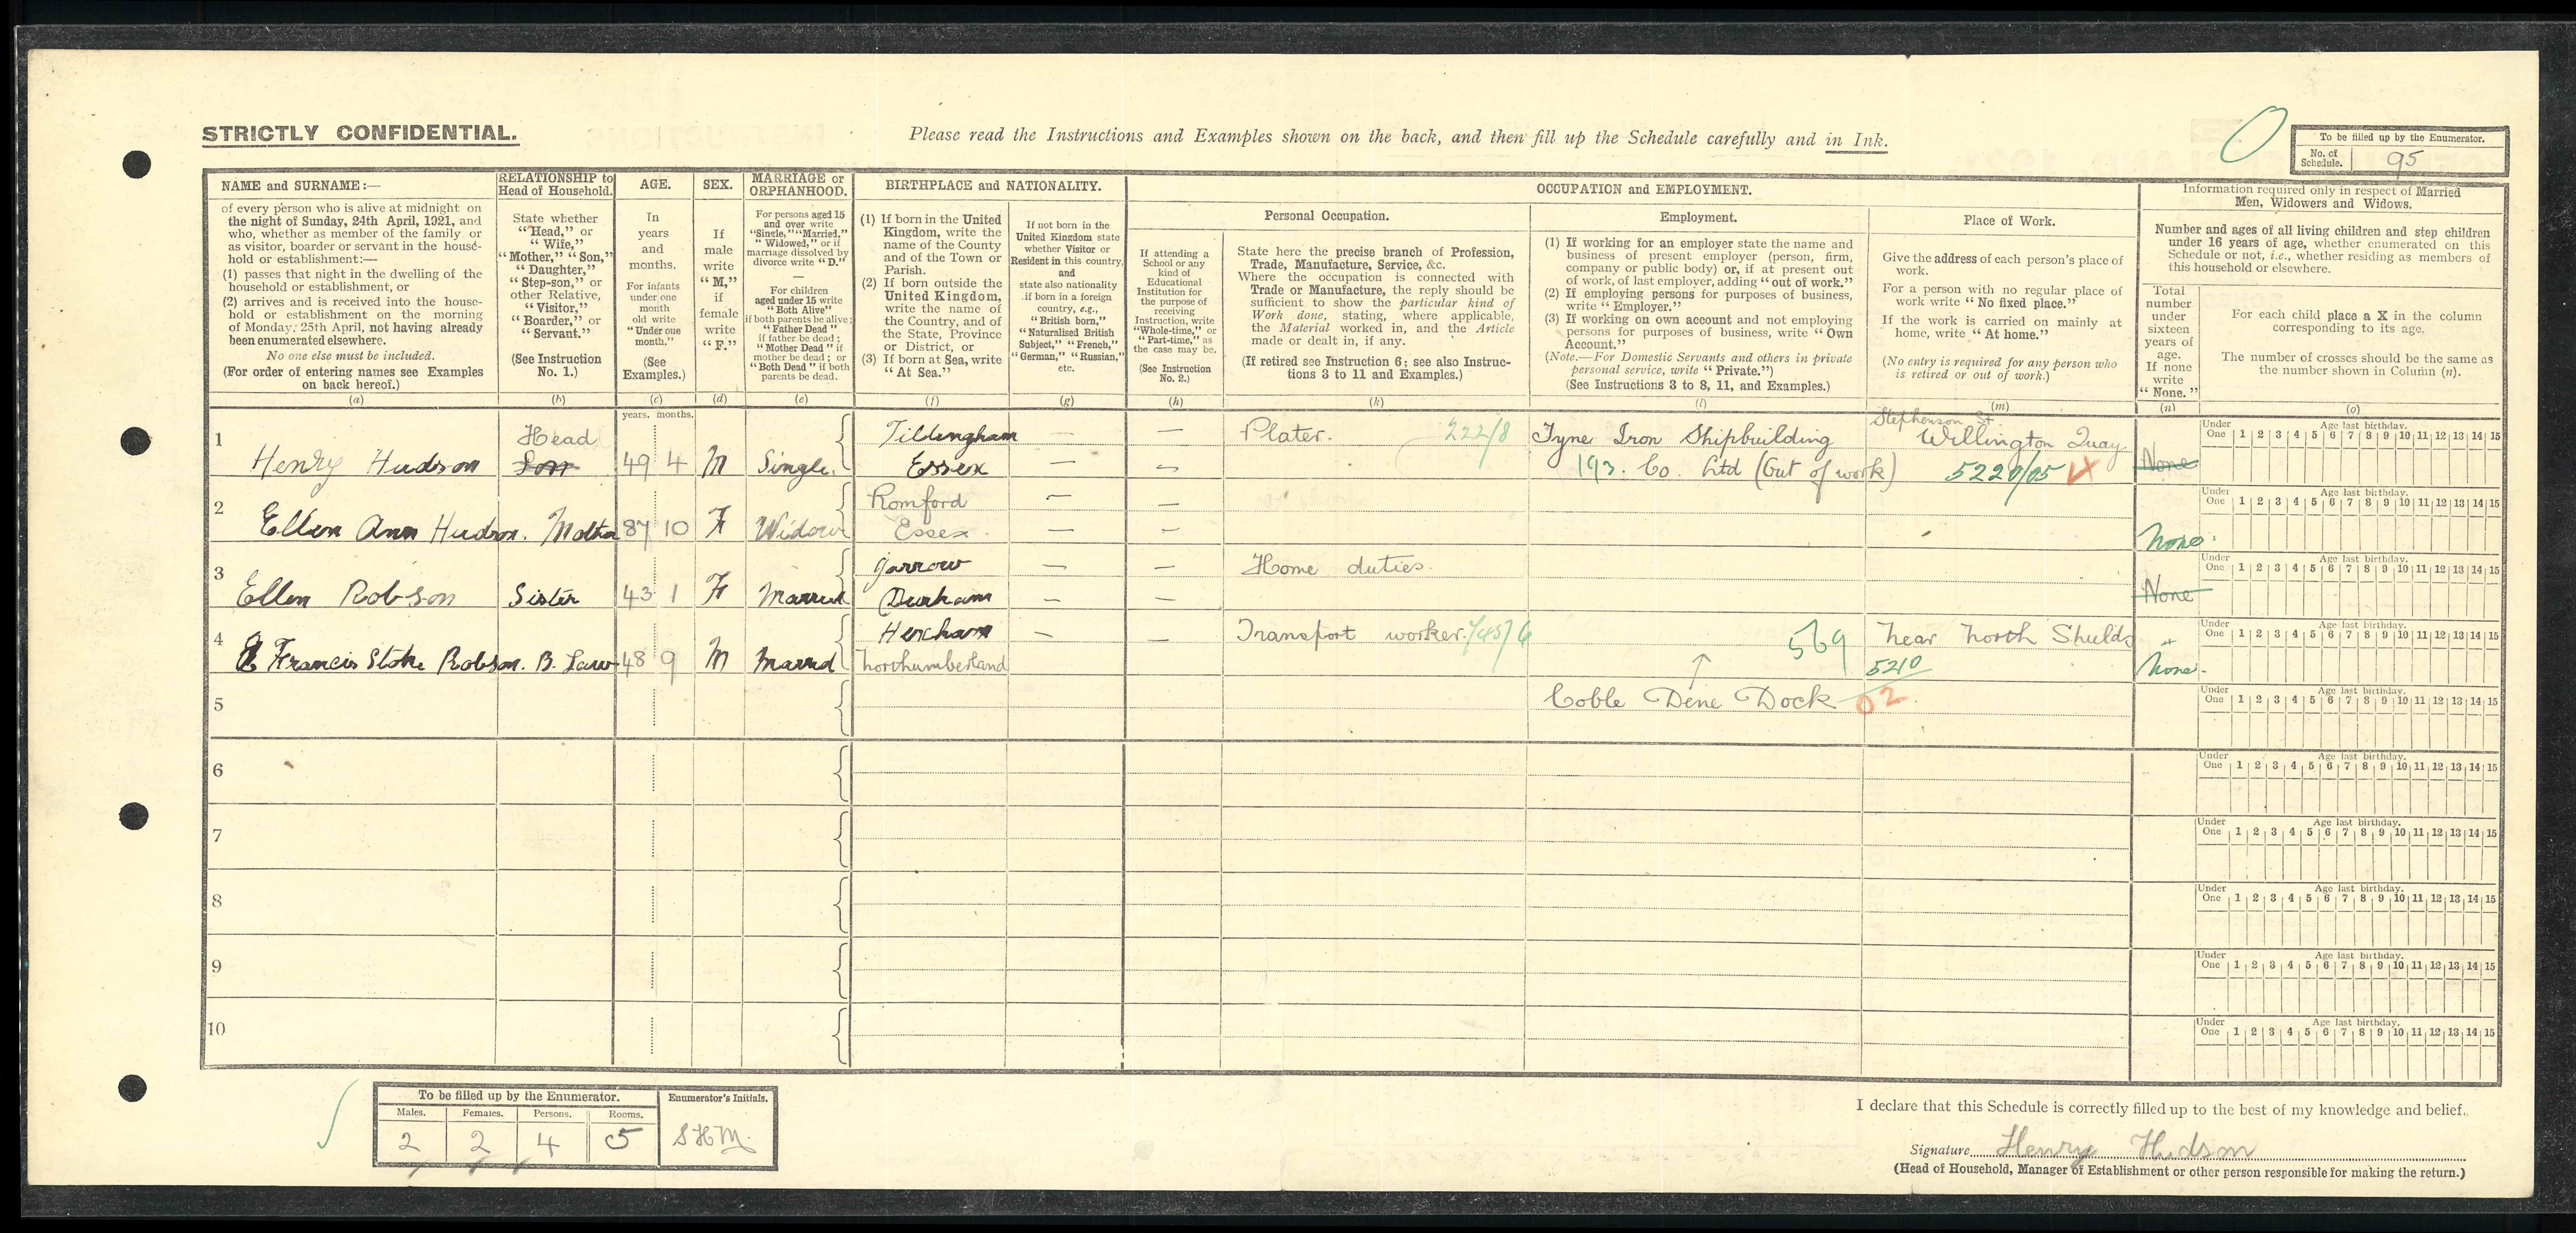 STRICTLY CONFIDENTIAL.
Please read the Instructions and Examples shown on the back, and then fill up the Schedule carefully and in Ink.
To be filled up by the Enumerator.
No. of Schedule. 95
NAME and SURNAME:—
of every person who is alive at midnight on
the night of Sunday, 24th April, 1921, and
who, whether as member of the family or
as visitor, boarder or servant in the house-
hold or establishment:—
(1) passes that night in the dwelling of the
household or establishment, or
(2) arrives and is received into the house-
hold or establishment on the morning
of Monday, 25th April, not having already
been enumerated elsewhere.
No one else must be included.
(For order of entering names see Examples
on back hereof.)
(a)
RELATIONSHIP to
Head of Household.
State whether
"Head," or
"Wife,"
"Mother," "Son,"
"Daughter,"
"Step-son," or
other Relative,
"Visitor,"
"Boarder," or
"Servant."
(See Instruction
No. 1.)
(b)
AGE.
In
years
and
months.
For infants
under one
month
old write
"Under one
month."
(See
Examples.)
(c)
SEX.
If
male
write
"M,"
if
female
write
"F."
(d)
MARRIAGE or
ORPHANHOOD.
For persons aged 15
and over write
"Single," "Married,"
"Widowed," or if
marriage dissolved by
divorce write "D."
—
For children
aged under 15 write
"Both Alive"
if both parents be alive;
"Father Dead"
if father be dead;
"Mother Dead" if
mother be dead; or
"Both Dead" if both
parents be dead.
(e)
BIRTHPLACE and NATIONALITY.
(1) If born in the United
Kingdom, write the
name of the County
and of the Town or
Parish.
(2) If born outside the
United Kingdom,
write the name of
the Country, and of
the State, Province
or District, or
(3) If born at Sea, write
"At Sea."
(f)
If not born in the
United Kingdom state
whether Visitor or
Resident in this country,
and
state also nationality
if born in a foreign
country, e.g.,
"British born,"
"Naturalised British
Subject," "French,"
"German," "Russian,"
etc.
(g)
OCCUPATION and EMPLOYMENT.
Personal Occupation.
If attending a
School or any
kind of
Educational
Institution for
the purpose of
receiving
Instruction, write
"Whole-time," or
"Part-time," as
the case may be.
(See Instruction
No. 2.)
(h)
State here the precise branch of Profession,
Trade, Manufacture, Service, &c.
Where the occupation is connected with
Trade or Manufacture, the reply should be
sufficient to show the particular kind of
Work done, stating, where applicable,
the Material worked in, and the Article
made or dealt in, if any.
(If retired see Instruction 6; see also Instruc-
tions 3 to 11 and Examples.)
(k)
Employment.
(1) If working for an employer state the name and
business of present employer (person, firm,
company or public body) or, if at present out
of work, of last employer, adding "out of work."
(2) If employing persons for purposes of business,
write "Employer."
(3) If working on own account and not employing
persons for purposes of business, write "Own
Account."
(Note.—For Domestic Servants and others in private
personal service, write "Private.")
(See Instructions 3 to 8, 11, and Examples.)
(l)
Place of Work.
Give the address of each person's place of
work.
For a person with no regular place of
work write "No fixed place."
If the work is carried on mainly at
home, write "At home."
(No entry is required for any person who
is retired or out of work.)
(m)
Information required only in respect of Married
Men, Widowers and Widows.
Number and ages of all living children and step children
under 16 years of age, whether enumerated on this
Schedule or not, i.e., whether residing as members of
this household or elsewhere.
Total
number
under
sixteen
years of
age.
If none
write
"None."
(n)
For each child place a X in the column
corresponding to its age.
The number of crosses should be the same as
the number shown in Column (n).
(o)
years. months.
1 Henry Hudson Head Son 49 4 M Single. Tillingham Essex — — Plater. 222/8 Tyne Iron Shipbuilding Stephenson St. Willington Quay
193. Co. Ltd (Out of work) 5220/05 None
Under One 1 2 3 4 5 6 7 8 9 10 11 12 13 14 15 Age last birthday.
2 Ellen Ann Hudson. Mother 87 10 F Widow Romford Essex. — — None.
Under One 1 2 3 4 5 6 7 8 9 10 11 12 13 14 15 Age last birthday.
3 Ellen Robson Sister 43 1 F Married Jarrow Durham — — Home duties. None
Under One 1 2 3 4 5 6 7 8 9 10 11 12 13 14 15 Age last birthday.
4 Francis Stoke Robson. B. Law 48 9 M Married Hexham Northumberland — — Transport worker. 745/6 569 near North Shields
5210 None.
Under One 1 2 3 4 5 6 7 8 9 10 11 12 13 14 15 Age last birthday.
5 Coble Dene Dock 02
Under One 1 2 3 4 5 6 7 8 9 10 11 12 13 14 15 Age last birthday.
6
Under One 1 2 3 4 5 6 7 8 9 10 11 12 13 14 15 Age last birthday.
7
Under One 1 2 3 4 5 6 7 8 9 10 11 12 13 14 15 Age last birthday.
8
Under One 1 2 3 4 5 6 7 8 9 10 11 12 13 14 15 Age last birthday.
9
Under One 1 2 3 4 5 6 7 8 9 10 11 12 13 14 15 Age last birthday.
10
Under One 1 2 3 4 5 6 7 8 9 10 11 12 13 14 15 Age last birthday.
To be filled up by the Enumerator.
Males. Females. Persons. Rooms.
2 2 4 5
Enumerator's Initials.
SHM.
I declare that this Schedule is correctly filled up to the best of my knowledge and belief.
Signature Henry Hudson
(Head of Household, Manager of Establishment or other person responsible for making the return.)